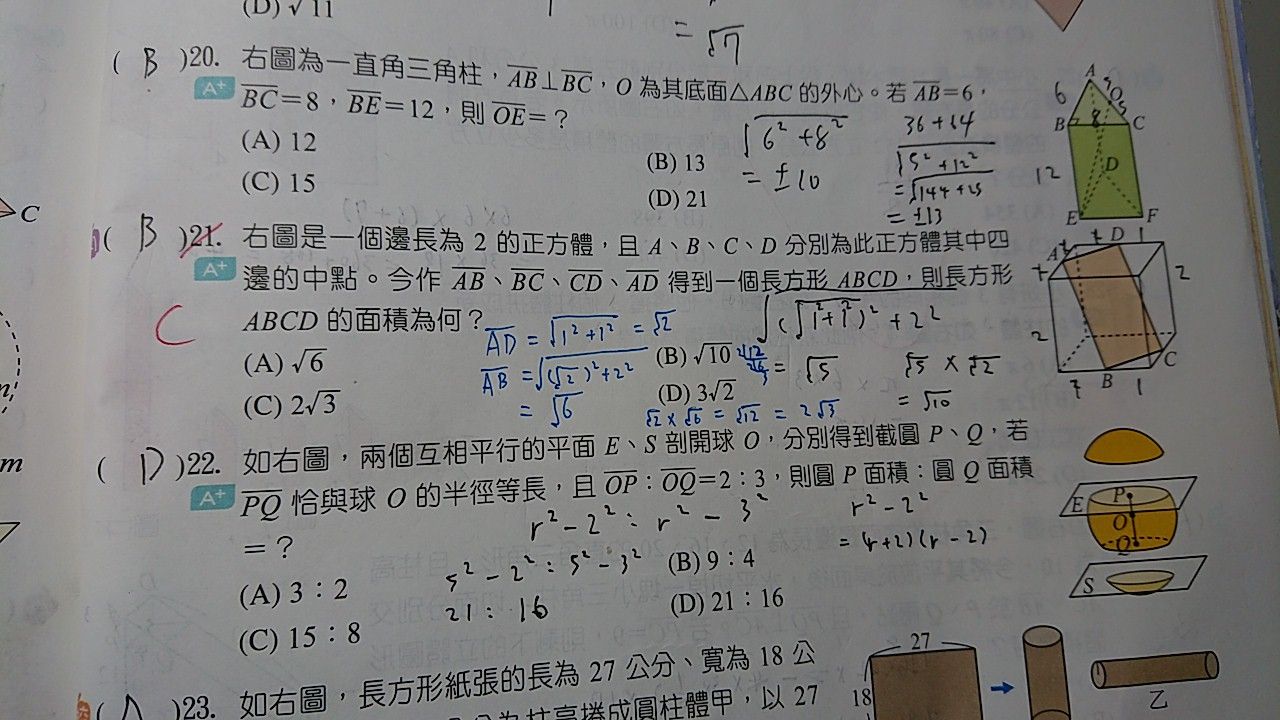 (D) √11
= √7
( B )20. 右圖為一直角三角柱，AB⊥BC，O 為其底面△ABC 的外心。若 AB=6，
A+ BC=8，BE=12，則 OE=？
(A) 12
(B) 13
(C) 15
(D) 21
√6²+8²
= ±10
36+64
√5²+12²
=√144+25
= ±13
A
6
5
O
5
B
8
C
12
D
E
F
C
( B )21. 右圖是一個邊長為 2 的正方體，且 A、B、C、D 分別為此正方體其中四
A+ 邊的中點。今作 AB、BC、CD、AD 得到一個長方形 ABCD，則長方形
C ABCD 的面積為何？
(A) √6
(B) √10
(C) 2√3
(D) 3√2
AD = √1²+1² = √2
AB = √(√2)²+2²
= √6
√2×√6 = √12 = 2√3
√(√1²+1²)²+2²
= √5
√5 × √2
= √10
A
D
1
2
2
B
1
C
( D )22. 如右圖，兩個互相平行的平面 E、S 剖開球 O，分別得到截圓 P、Q，若
A+ PQ 恰與球 O 的半徑等長，且 OP：OQ=2：3，則圓 P 面積：圓 Q 面積
=？
(A) 3：2
(B) 9：4
(C) 15：8
(D) 21：16
r²-2² : r²-3²
5²-2² : 5²-3²
21 : 16
r²-2²
= (r+2)(r-2)
E
P
O
Q
S
m
)23. 如右圖，長方形紙張的長為 27 公分、寬為 18 公
27
18
乙